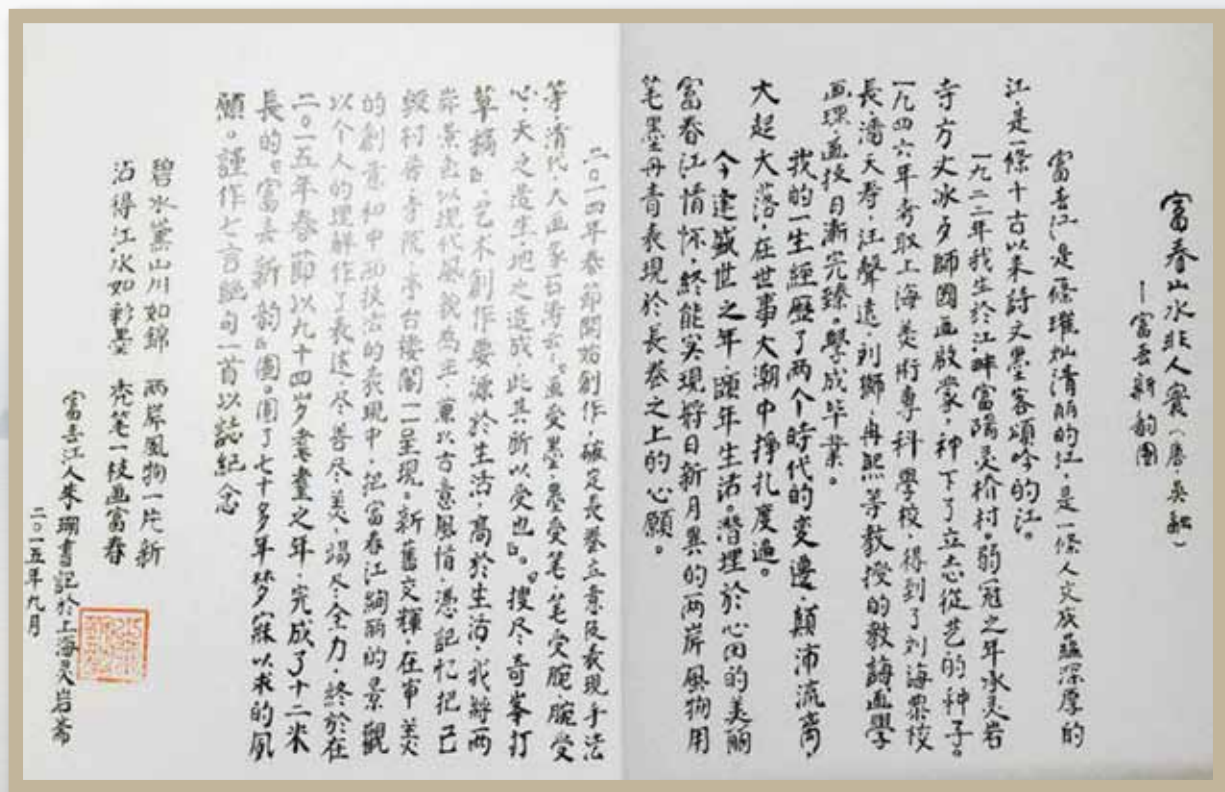 富春山水非人寰（唐·吴融）
—富春新韵图
富春江，是一條璀灿清丽的江，是一條人文底蕴深厚的
江，是一條千古以来詩文墨客頌吟的江。
一九二二年我生於江畔富陽灵桥村。弱冠之年水灵岩
寺方丈冰夕師國画啟蒙，种下了立志從艺的种子。
一九四六年考取上海美術專科學校，得到了刘海粟校
長、潘天寿、汪聲遠、刘獅、冉熙等教授的教誨，画學
画理、画技日漸完臻。學成毕業。
我的一生經歷了两个時代的変遷，顛沛流离，
大起大落，在世事大潮中掙扎度過。
今逢盛世之年，頤年生活。潛埋於心田的美丽
富春江情怀，終能实現将日新月異的两岸風物用
笔墨丹青表現於長卷之上的心願。
二〇一四年春節開始創作，確定長卷立意及表現手法
等，清代大画家石涛云：“画受墨，墨受笔，笔受腕，腕受
心，天之造生，地之造成，此其所以受也”。“搜尽奇峯打
草稿”，艺术創作要源於生活，高於生活，我将两
岸景色以現代風貌為主，兼以古意風情，憑記忆把已
毁村落、寺院、亭台楼閣一一呈現。新舊交輝，在审美
的創意和中国技法的表現中，把富春江絢丽的景觀
以个人的理解作了表述，尽善尽美，竭尽全力，終於在
二〇一五年春節以九十四岁耄耋之年，完成了十二米
長的“富春新韵”圖。圓了七十多年梦寐以求的夙
願。謹作七言絕句一首以誌紀念
碧水黛山川如錦 两岸風物一片新
沾得江水如彩墨 秃笔一枝画富春
富春江人朱瑚書記於上海灵岩斋
二〇一五年九月